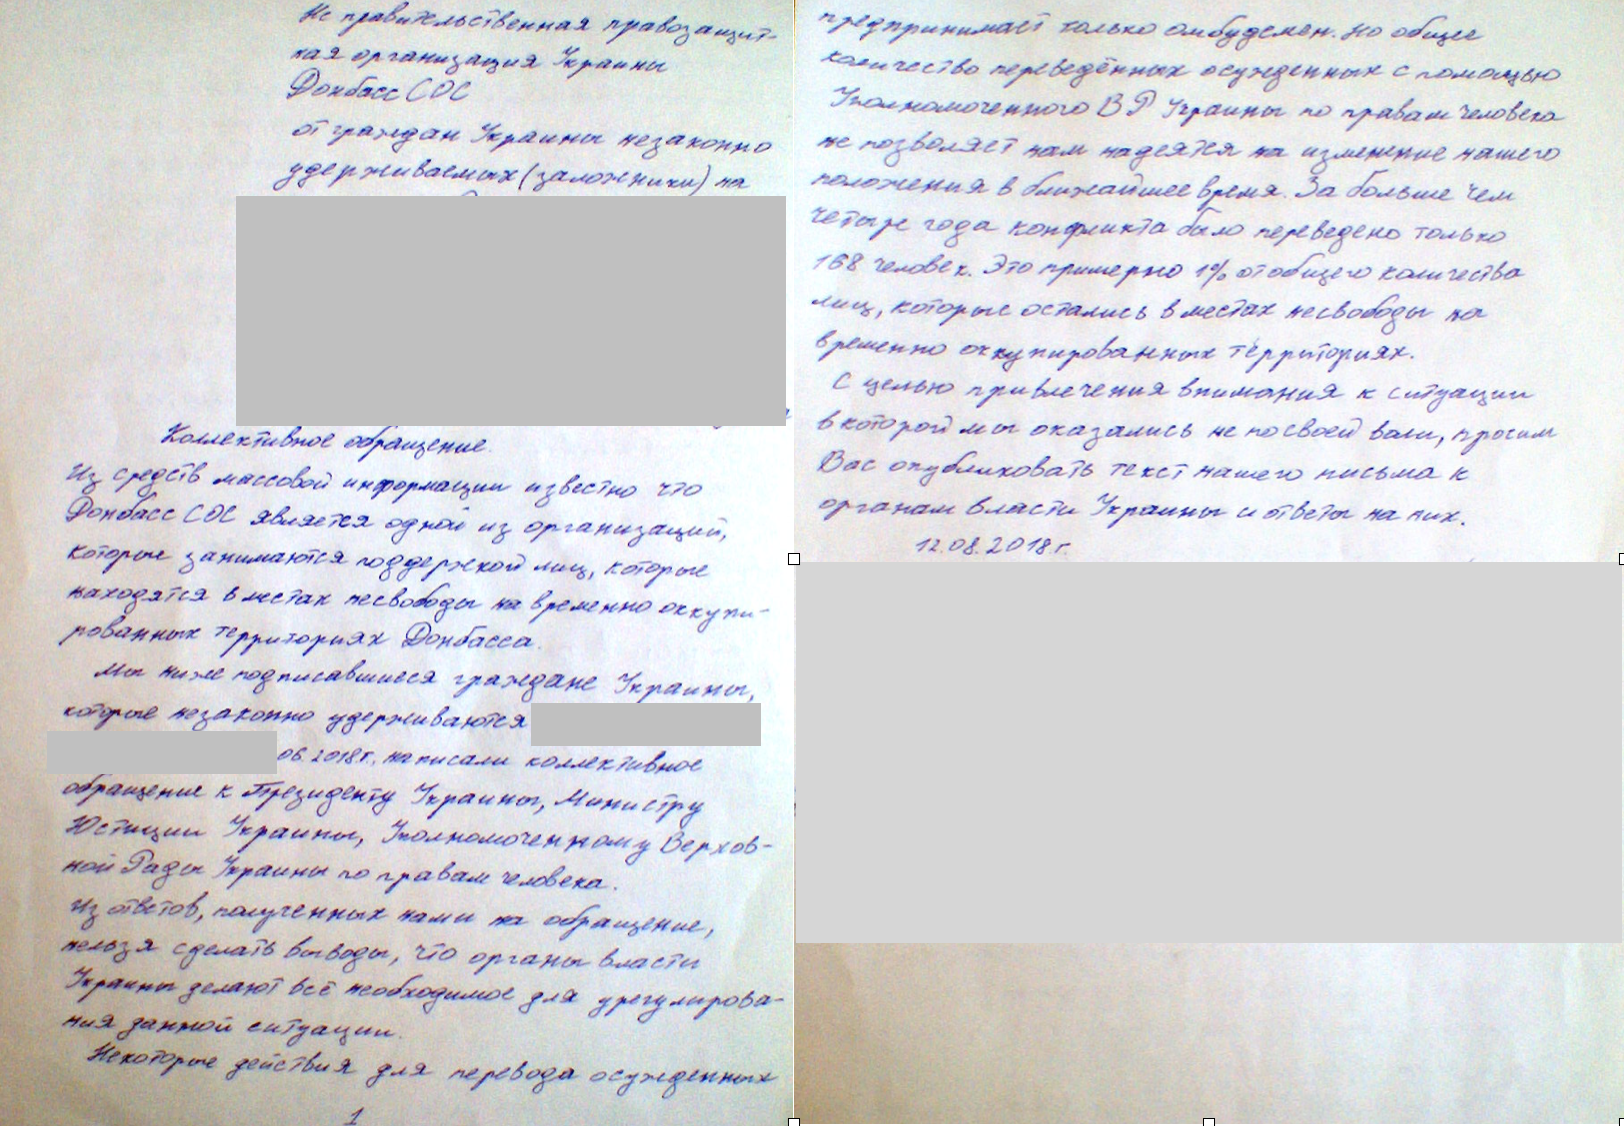 Не правительственная правозащит-
ная организация Украины
Донбасс СОС
от граждан Украины незаконно
удерживаемых (заложники) на
Коллективное обращение.
Из средств массовой информации известно что
Донбасс СОС является одной из организаций,
которые занимаются поддержкой лиц, которые
находятся в местах несвободы на временно оккупи-
рованных территориях Донбасса.
Мы ниже подписавшиеся граждане Украины,
которые незаконно удерживаются
06.2018г. написали коллективное
обращение к Президенту Украины, Министру
Юстиции Украины, Уполномоченному Верхов-
ной Рады Украины по правам человека.
Из ответов, полученных нами на обращение,
нельзя сделать выводы, что органы власти
Украины делают всё необходимое для урегулирова-
ния данной ситуации.
Некоторые действия для перевода осужденных
1
предпринимает только омбудсмен. Но общее
количество переведённых осужденных с помощью
Уполномоченного ВР Украины по правам человека
не позволяет нам надеятся на изменение нашего
положения в ближайшее время. За больше чем
четыре года конфликта было переведено только
168 человек. Это примерно 1% от общего количества
лиц, которые остались в местах несвободы на
временно оккупированных территориях.
С целью привлечения внимания к ситуации
в которой мы оказались не по своей воли, просим
Вас опубликовать текст нашего письма к
органам власти Украины и ответы на них.
12.08.2018г.